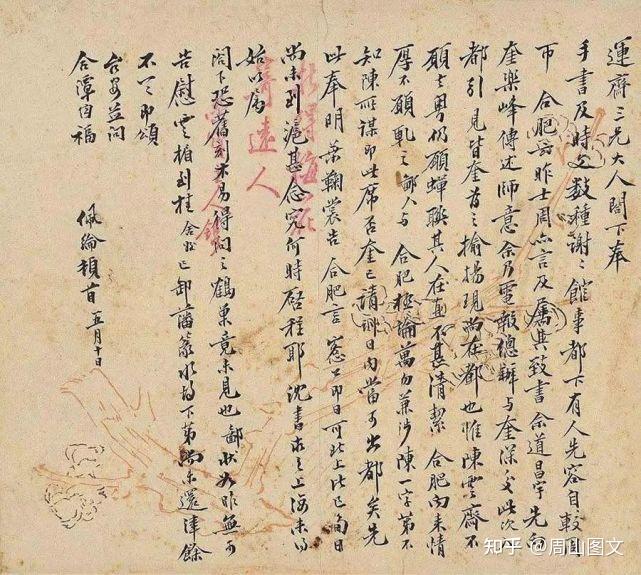 運齋三兄大人閣下奉
手書及時文數種謝謝館事都下有人先容自較周
帀合肥云昨士周亦言及屬其致書余道昌宇先向
奎樂峰傳述師意余乃電報總辦与奎深交此次入
都引見皆奎首之揄揚現尚在都也惟陳雲齋不
願去粵仍願蟬聯其人在直不甚清潔合肥向來情
厚不願軋之鄙人与合肥極論萬勿兼涉陳一字第不
知陳所謀即此席否奎已請訓日內當可出都矣先
此奉明葉鞠裳告合肥言窓公即日可北上比已旬日
尚未到滬甚念究何時啓程耶沈書求之上海未得
始以屬
閣下恐舊刻未易得詢之鶴巢竟未見也鄙狀如昨無可
告慰雲楣到桂已卸藩篆水的下第尚未還津餘
不一一即頌
台安並問
合潭因福
佩綸頓首五月十日
遠人
知乎 @周山图文